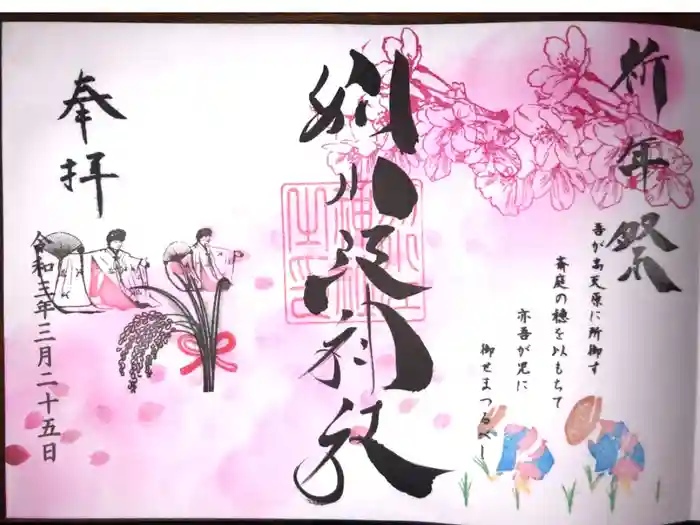 祈年祭
吾が高天原に所御す
斎庭の穂を以もちて
亦吾が児に
御せまつるべし
別小江神社
別小江
神社
之印
奉拝
令和三年三月二十五日